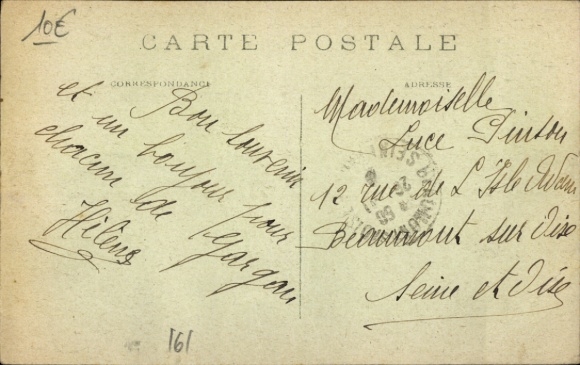 10€
CARTE POSTALE
CORRESPONDANCE
ADRESSE
Bon souvenir
et un bonjour pour
chacun de Gargan
Hélène
Mademoiselle
Luce Pinson
12 rue de L'Isle Adam
Beaumont sur Oise
Seine et Oise
161